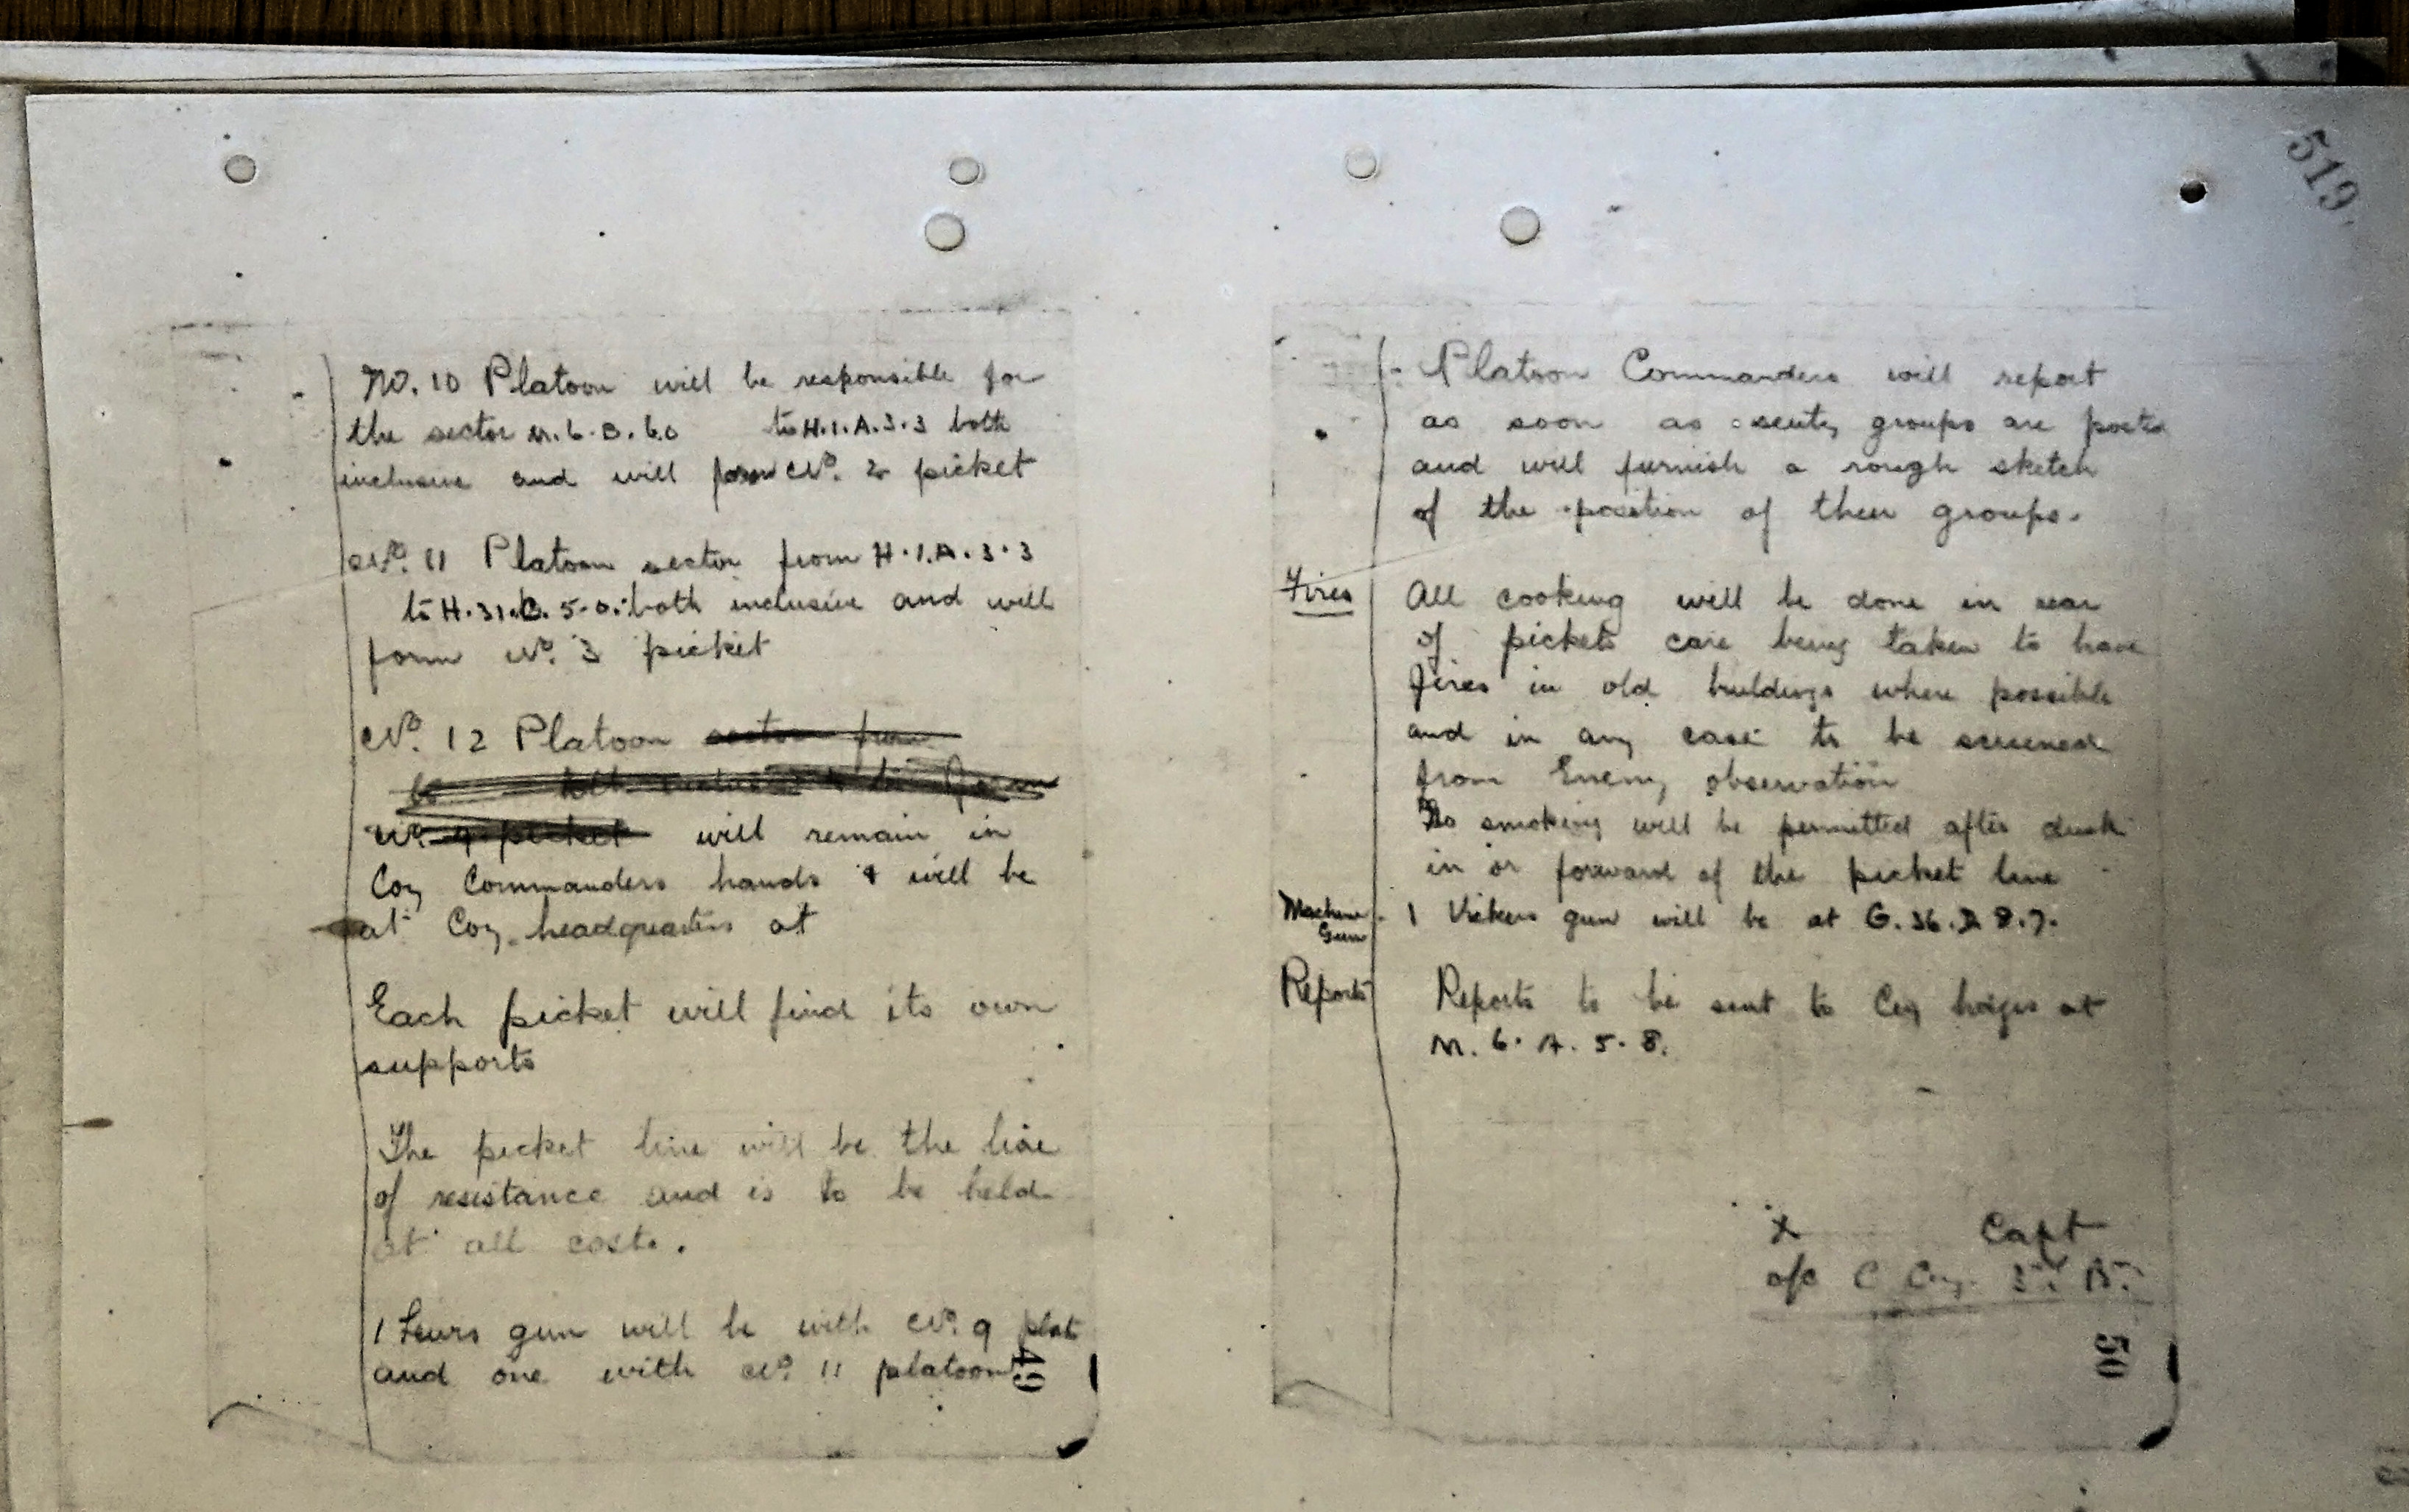 No. 10 Platoon will be responsible for
the sector M.6.B.6.0 to H.1.A.3.3 both
inclusive and will form No. 2 picket
No. 11 Platoon sector from H.1.A.3.3
to H.31.C.5.0. both inclusive and will
form No. 3 picket
No. 12 Platoon sector from
to both inclusive form
No. 4 picket will remain in
Coy Commanders hands & will be
at Coy. headquarters at
Each picket will find its own
supports
The picket line will be the line
of resistance and is to be held
at all costs.
1 Lewis gun will be with No. 9 plat
and one with No. 11 platoon
49
519
Platoon Commanders will report
as soon as sentry groups are posted
and will furnish a rough sketch
of the position of their groups.
Fires All cooking will be done in rear
of pickets care being taken to have
fires in old buildings where possible
and in any case to be screened
from Enemy observation
No smoking will be permitted after dusk
in or forward of the picket line
Machine Gun 1 Vickers gun will be at G.36.D.8.7.
Reports Reports to be sent to Coy hdqrs at
M.6.A.5.8.
Capt
o/c C Coy.
50